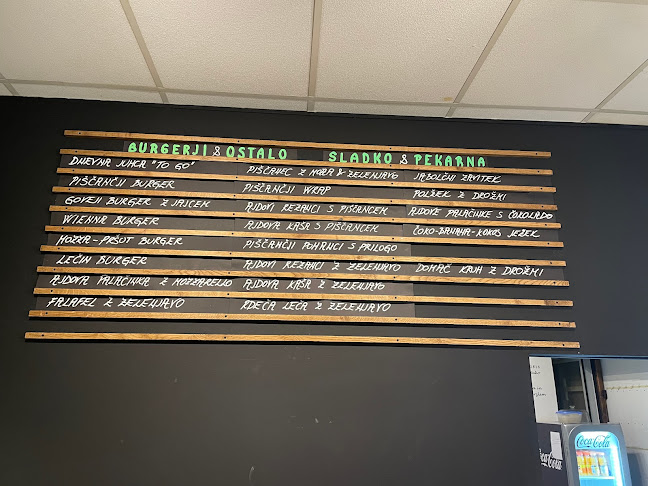 BURGERJI & OSTALO SLADKO & PEKARNA
DNEVNA JUHA "TO GO" PIŠČANEC Z MOZA & ZELENJAVO JABOLČNI ZAVITEK
PIŠČANČJI BURGER PIŠČANČJI WRAP POLŽEK Z DROŽMI
GOVEJI BURGER Z JAJCEM AJDOVI REZANCI S PIŠČANCEM AJDOVE PALAČINKE S ČOKOLADO
WIENNA BURGER AJDOVA KAŠA S PIŠČANCEM ČOKO-BANANA-KOKOS JEŽEK
MOZZA-PRŠUT BURGER PIŠČANČJI POHANCI S PRILOGO
LEČIN BURGER AJDOVI REZANCI Z ZELENJAVO DOMAČ KRUH Z DROŽMI
AJDOVA PALAČINKA Z MOZZARELLO AJDOVA KAŠA Z ZELENJAVO
FALAFEL Z ZELENJAVO RDEČA LEČA Z ZELENJAVO
Coca-Cola
Coca-Cola